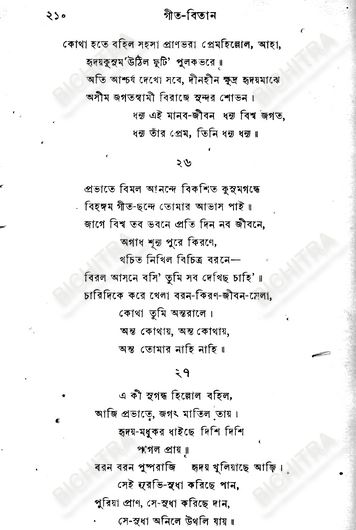 ২১০ গীত-বিতান
কোথা হতে বহিল সহসা প্রাণভরা প্রেমহিল্লোল, আহা,
হৃদয়কুসুম উঠিল ফুটি' পুলকভরে॥
অতি আশ্চর্য দেখো সবে, দীনহীন ক্ষুদ্র হৃদয়মাঝে
অসীম জগতস্বামী বিরাজে সুন্দর শোভন।
ধন্য এই মানব-জীবন ধন্য বিশ্ব জগত,
ধন্য তাঁর প্রেম, তিনি ধন্য ধন্য॥
২৬
প্রভাতে বিমল আনন্দে বিকশিত কুসুমগন্ধে
বিহঙ্গম গীত-ছন্দে তোমার আভাস পাই॥
জাগে বিশ্ব তব ভবনে প্রতি দিন নব জীবনে,
অগাধ শূন্য পুরে কিরণে,
খচিত নিখিল বিচিত্র বরনে—
বিরল আসনে বসি' তুমি সব দেখিছ চাহি'॥
চারিদিকে করে খেলা বরন-কিরণ-জীবন-মেলা,
কোথা তুমি অন্তরালে।
অন্ত কোথায়, অন্ত কোথায়,
অন্ত তোমার নাহি নাহি॥
২৭
এ কী সুগন্ধ হিল্লোল বহিল,
আজি প্রভাতে, জগৎ মাতিল তায়।
হৃদয়-মধুকর ধাইছে দিশি দিশি
পাগল প্রায়॥
বরন বরন পুষ্পরাজি হৃদয় খুলিয়াছে আজি।
সেই সুরভি-সুধা করিছে পান,
পুরিয়া প্রাণ, সে-সুধা করিছে দান,
সে-সুধা অনিলে উথলি যায়॥
BICHITRA